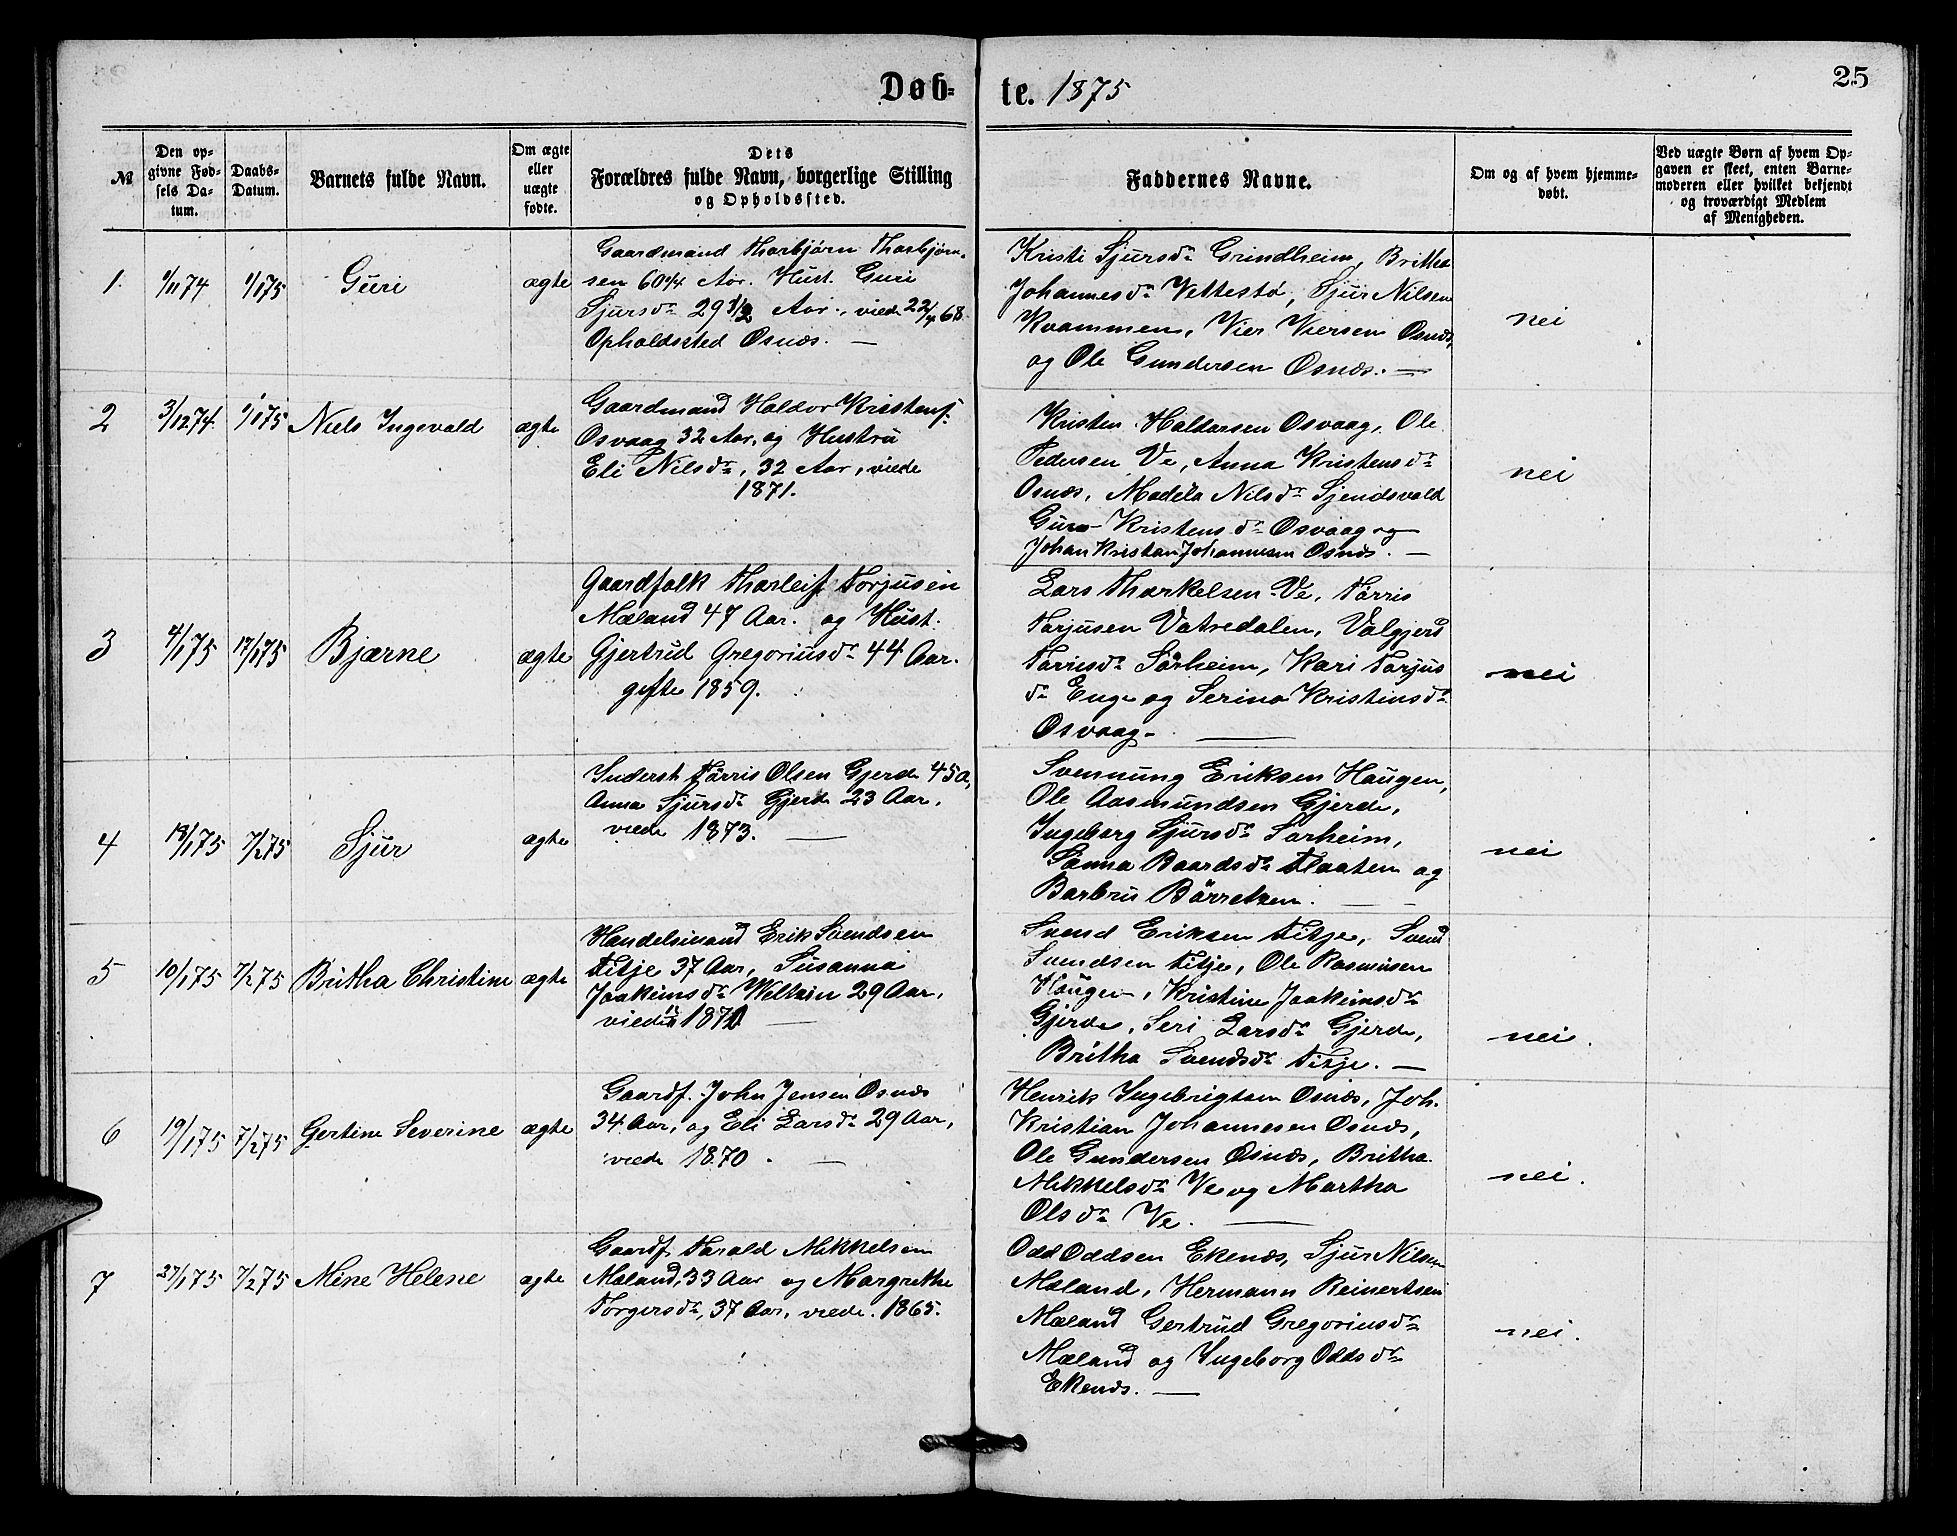 Døb-
te. 1875
25
№
Den op-
givne Fød-
sels Da-
tum.
Daabs-
Datum.
Barnets fulde Navn.
Om ægte
eller
uægte
fødte.
Dets
Forældres fulde Navn, borgerlige Stilling
og Opholdssted.
Faddernes Navne.
Om og af hvem hjemme-
døbt.
Ved uægte Børn af hvem Op-
gaven er skeet, enten Barne-
moderen eller hvilket bekjendt
og troværdigt Medlem
af Menigheden.
1. 1/11 74 1/1 75 Guri ægte
Gaardmand Thorbjørn Thorbjørn-
sen 60 1/4 Aar. Hust. Guri
Sjursdr 29 1/2 Aar., viede 22/4 68.
Opholdssted Osnæs. —
Kristi Sjursdr Grindheim, Britha
Johannesdr Vettestø, Sjur Nilsen
Kvammen, Vier Viersen Osnæs,
og Ole Gundersen Osnæs. —
nei
2 3/12 74. 1/1 75 Niels Ingevald ægte
Gaardmand Haldor Kristens.
Osvaag 32 Aar, og Hustru
Eli Nilsdr, 32 Aar, viede
1871.
Kristen Haldorsen Osvaag, Ole
Pedersen Ve, Anna Kristensdr
Osnæs, Madela Nilsdr Sjendsvold
Guro Kristensdr Osvaag og
Johan Kristian Johannesen Osnæs. —
nei
3 4/1 75 17/1 75 Bjærne ægte
Gaardfolk Thorleif Torjusen
Mæland 47 Aar. og Hust.
Gjertrud Gregoriusdr 44 Aar.
gifte 1859.
Lars Thorkelsen Ve, Tørris
Torjusen Vatsedalen, Valgjerd
Tørrisdr Sørheim, Kari Torjus
dr Enge og Serina Kristinsdr
Osvaag. —
nei
4 18/1 75 7/2 75 Sjur ægte
Inderst Tørris Olsen Gjerde 45 a,
Anna Sjursdr Gjerde 23 Aar,
viede 1873. —
Svennung Eriksen Haugen,
Ole Aasmundsen Gjerde,
Ingeborg Sjursdr Sørheim,
Sanna Baardsdr Flaaten og
Barbru Børretsen. — —
nei
5 10/1 75 7/2 75 Britha Christine ægte
Handelsmand Erik Svendsen
Fitje 37 Aar, Susanna
Joakimsdr Weltzin 29 Aar,
viede 1870 —
Svend Eriksen Fitje, Svend
Svendsen Fitje, Ole Rasmusen
Haugen, Kristine Joakimsdr
Gjerde, Seri Larsdr Gjerde,
Britha Svendsdr Fitje. —
nei.
6 19/1 75 7/2 75 Gertine Severine ægte
Gaardf. John Jensen Osnæs
34 Aar, og Eli Larsdr 29 Aar,
viede 1870. —
Henrik Ingebrigtsen Osnæs, Joh.
Kristian Johannesen Osnæs,
Ole Gundersen Osnæs, Britha
Mikkelsdr Ve og Martha
Olsdr Ve. —
nei.
7 27/1 75 7/2 75 Mine Helene ægte
Gaardf. Torald Mikkelsen
Mæland, 33 Aar og Margrethe
Torgersdr, 37 Aar, viede. 1865.
Odd Oddsen Ekenæs, Sjur Nilsen
Mæland, Hermann Reinertsen
Mæland Gertrud Gregoriusdr
Mæland og Ingeborg Oddsdr
Ekenæs. —
nei.